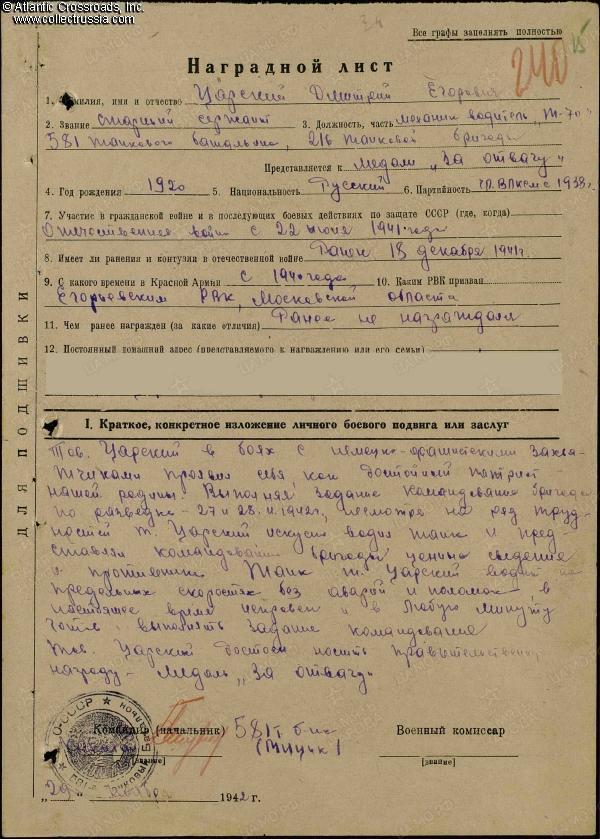 © Atlantic Crossroads, Inc.
www.collectrussia.com
Все графы заполнять полностью
240
15
Наградной лист
1. Фамилия, имя и отчество Царский Дмитрий Егорович
2. Звание старший сержант 3. Должность, часть механик водитель „Т-70"
581 танкового батальона, 216 танковой бригады
Представляется к медали „За отвагу"
4. Год рождения 1920 5. Национальность Русский 6. Партийность чл. ВЛКСМ с 1938г.
7. Участие в гражданской войне и в последующих боевых действиях по защите СССР (где, когда)
Отечественная война с 22 июня 1941 года
8. Имеет ли ранения и контузии в отечественной войне Ранен 18 декабря 1941г.
9. С какого времени в Красной Армии с 1940 года 10. Каким РВК призван
Егорьевским РВК, Московской области
11. Чем ранее награжден (за какие отличия) Ранее не награждался
12. Постоянный домашний адрес (представляемого к награждению или его семьи)
ДЛЯ ПОДШИВКИ
I. Краткое, конкретное изложение личного боевого подвига или заслуг
Тов. Царский в боях с немецко-фашистскими захва-
тчиками проявил себя, как достойный патриот
нашей родины. Выполняя задание командования бригады
по разведке - 27 и 28. 1942г, несмотря на ряд труд-
ностей т. Царский искусно водил танк и пред-
ставлял командованию бригады ценные сведения
о противнике. Танк т. Царский водит на
предельных скоростях без аварий и поломок, в
настоящее время исправен и в любую минуту
готов выполнить задание командования
Тов. Царский достоен носить правительственную
награду - медаль „За отвагу"
Командир (начальник) 581 т. б-на
Военный комиссар
[звание]
[звание]
СССР
„29" 1942 г.